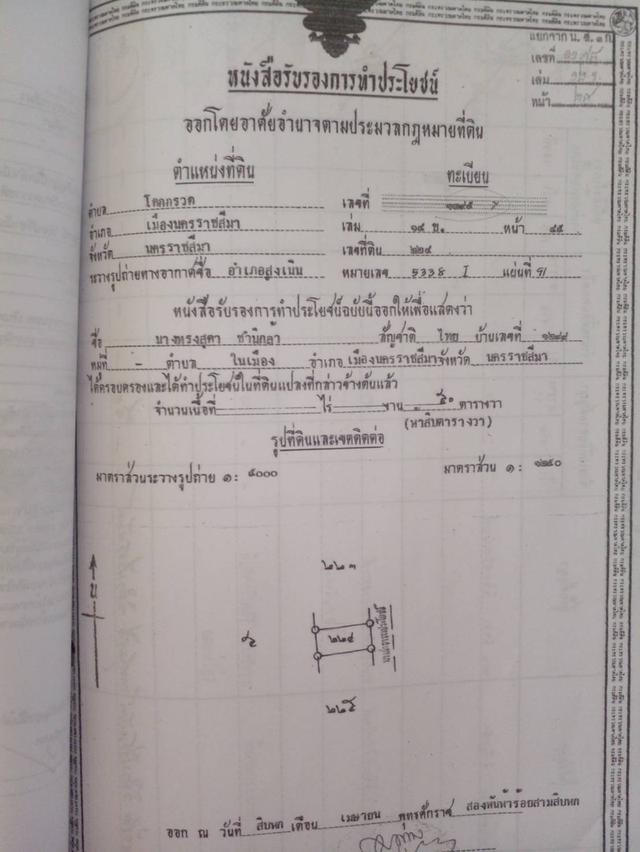 แยกจาก น.ส.๓ ก
เลขที่
เล่ม
หน้า
หนังสือรับรองการทำประโยชน์
ออกโดยอาศัยอำนาจตามประมวลกฎหมายที่ดิน
ตำแหน่งที่ดิน ทะเบียน
ตำบล โคกกรวด เลขที่
อำเภอ เมืองนครราชสีมา เล่ม ๑๙ ข. หน้า ๔๕
จังหวัด นครราชสีมา เลขที่ดิน ๒๒๔
ระวางรูปถ่ายทางอากาศชื่อ อำเภอสูงเนิน หมายเลข 5338 I แผ่นที่ 91
หนังสือรับรองการทำประโยชน์ฉบับนี้ออกให้เพื่อแสดงว่า
ชื่อ นางทรงสุดา ชำนิกล้า สัญชาติ ไทย บ้านเลขที่ ๑๒๘๙
หมู่ที่ - ตำบล ในเมือง อำเภอ เมืองนครราชสีมา จังหวัด นครราชสีมา
ได้ครอบครองและได้ทำประโยชน์ในที่ดินแปลงที่กล่าวข้างต้นแล้ว
จำนวนเนื้อที่ ไร่ งาน ๕๐ ตารางวา
(ห้าสิบตารางวา)
รูปที่ดินและเขตติดต่อ
มาตราส่วนระวางรูปถ่าย ๑ : ๕๐๐๐ มาตราส่วน ๑ : ๑๒๕๐
๒๒๓
น
๒๒๔
๒๒๕
ออก ณ วันที่ สิบหก เดือน เมษายน พุทธศักราช สองพันห้าร้อยสามสิบหก